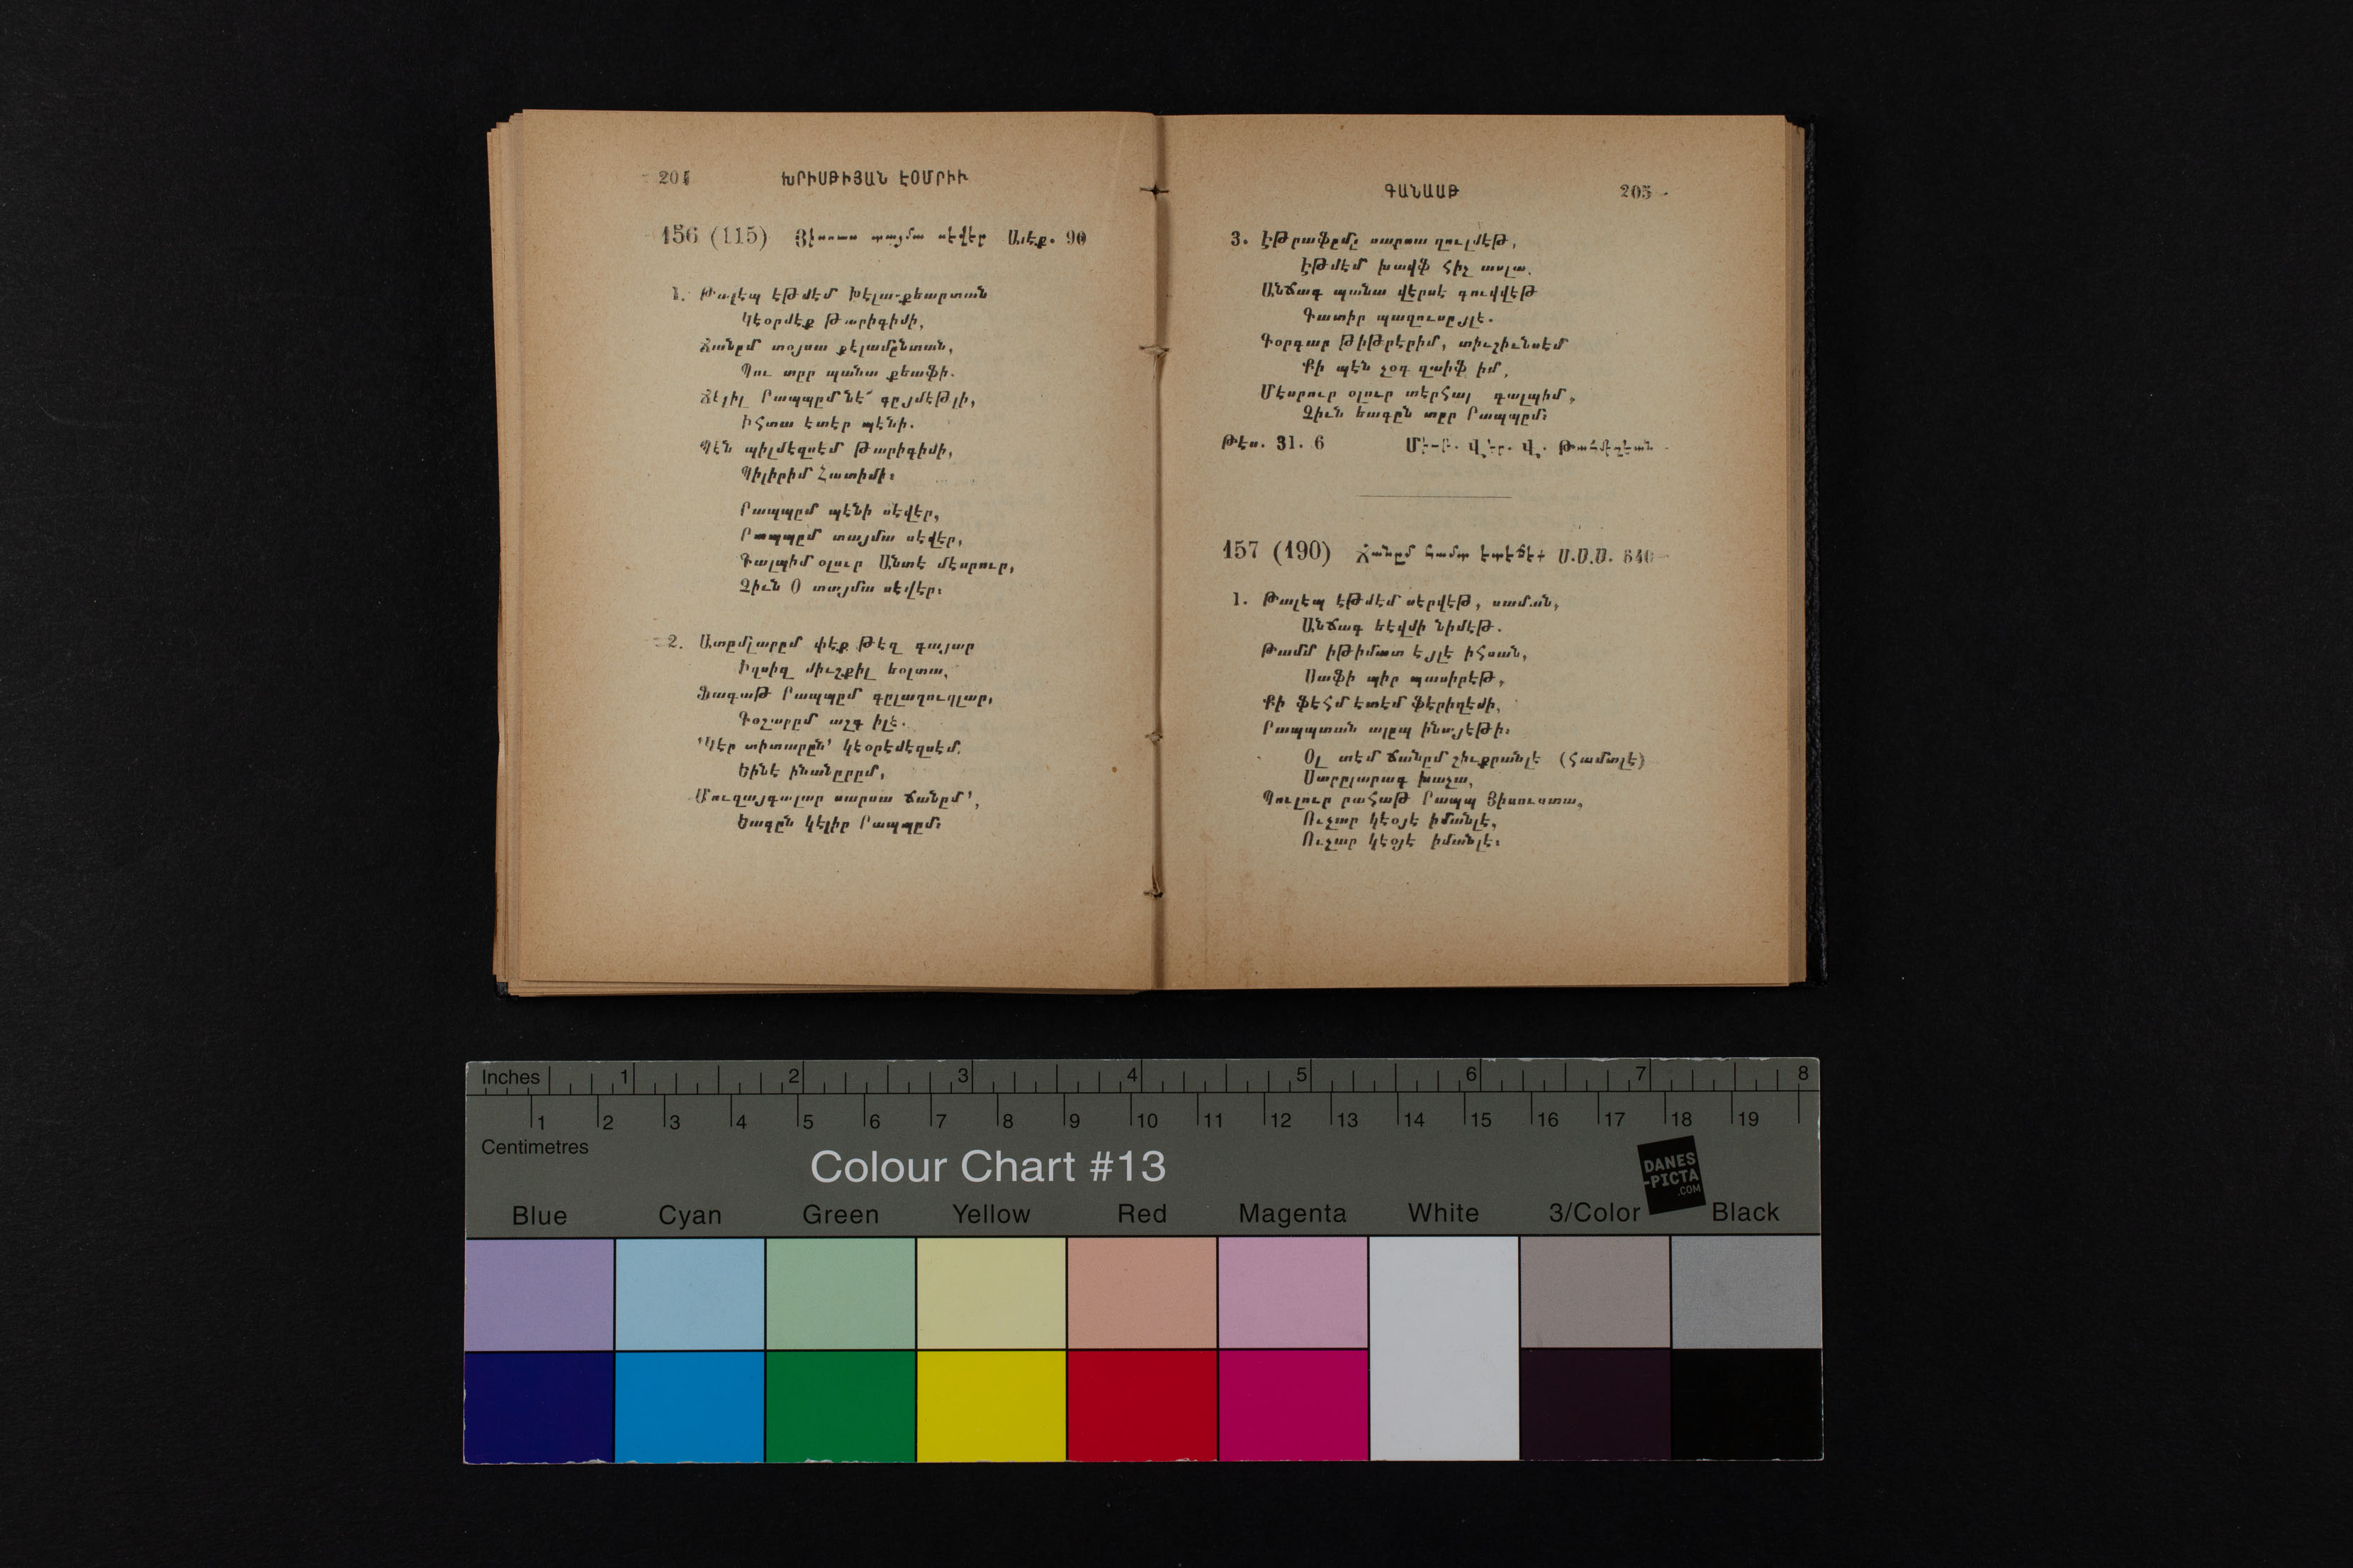 204 ԽՐԻՍԹԻՅԱՆ ԷՕՄՐԻՒ
156 (115) սէվեր Ալէք. 90
1. Թալէպ էթմէմ խէլա-քեարտան
Կէօրմէք թարիգիմի,
Ճանըմ տօյսա քէլամընտան,
Պու տըր պանա քեաֆի.
Ճէլիլ Րապպըմ նէ՜ գըյմէթլի,
Իհտա էտէր պէնի.
Պէն պիլմէզսէմ թարիգիմի,
Պիլիրիմ Հատիմի։
Րապպըմ պէնի սէվէր,
Րապպըմ տայմա սէվէր,
Գալպիմ օլուր Անտէ մէսրուր,
Զիւն Օ տայմա սէվէր։
2. Ատըմլարըմ փէք թէզ գայար
Իզսիզ միւշքիլ եօլտա,
Ֆագաթ Րապպըմ գըլաղուզլար,
Գօշարըմ աշգ իլէ.
'Կէր տիտարըն' կէօրէմէզսէմ,
Եինէ ինանըրըմ,
Մուզայգալար սարսա ճանըմ',
Եագըն կէլիր Րապպըմ։
ԳԱՆԱԱԹ 205
3. Էթրաֆըմը սարսա զուլմէթ,
Էթմէմ խավֆ հիչ ասլա.
Անճագ պանա վէրսէ գուվվէթ
Գատիր պազուսըյլէ.
Գօրգար թիթրէրիմ, տիւշիւնսէմ
Քի պէն չօգ զաիֆ իմ,
Մէսրուր օլուր տէրհալ գալպիմ,
Զիւն եագըն տըր Րապպըմ։
Թէս. 31. 6
157 (190) Ճանըմ համտ Ս.Օ.Օ. 640
1. Թալէպ էթմէմ սէրվէթ, սաման,
Անճագ եէվմի նիմէթ.
Թամմ իթիմատ էյլէ իհսան,
Սաֆի պիր պասիրէթ,
Քի ֆեհմ էտէմ ֆէրիզէմի,
Րապպտան ալըպ ինայէթի։
Օլ տէմ ճանըմ շիւքրանլէ (համտլէ)
Սարըլարագ խաչա,
Պուլուր րահաթ Րապպ Յիսուստա,
Ուչար կէօյէ իմանլէ,
Ուչար կէօյէ իմանլէ։
Inches 1 2 3 4 5 6 7 8
1 2 3 4 5 6 7 8 9 10 11 12 13 14 15 16 17 18 19
Centimetres
Colour Chart #13
DANES
-PICTA
.COM
Blue Cyan Green Yellow Red Magenta White 3/Color Black